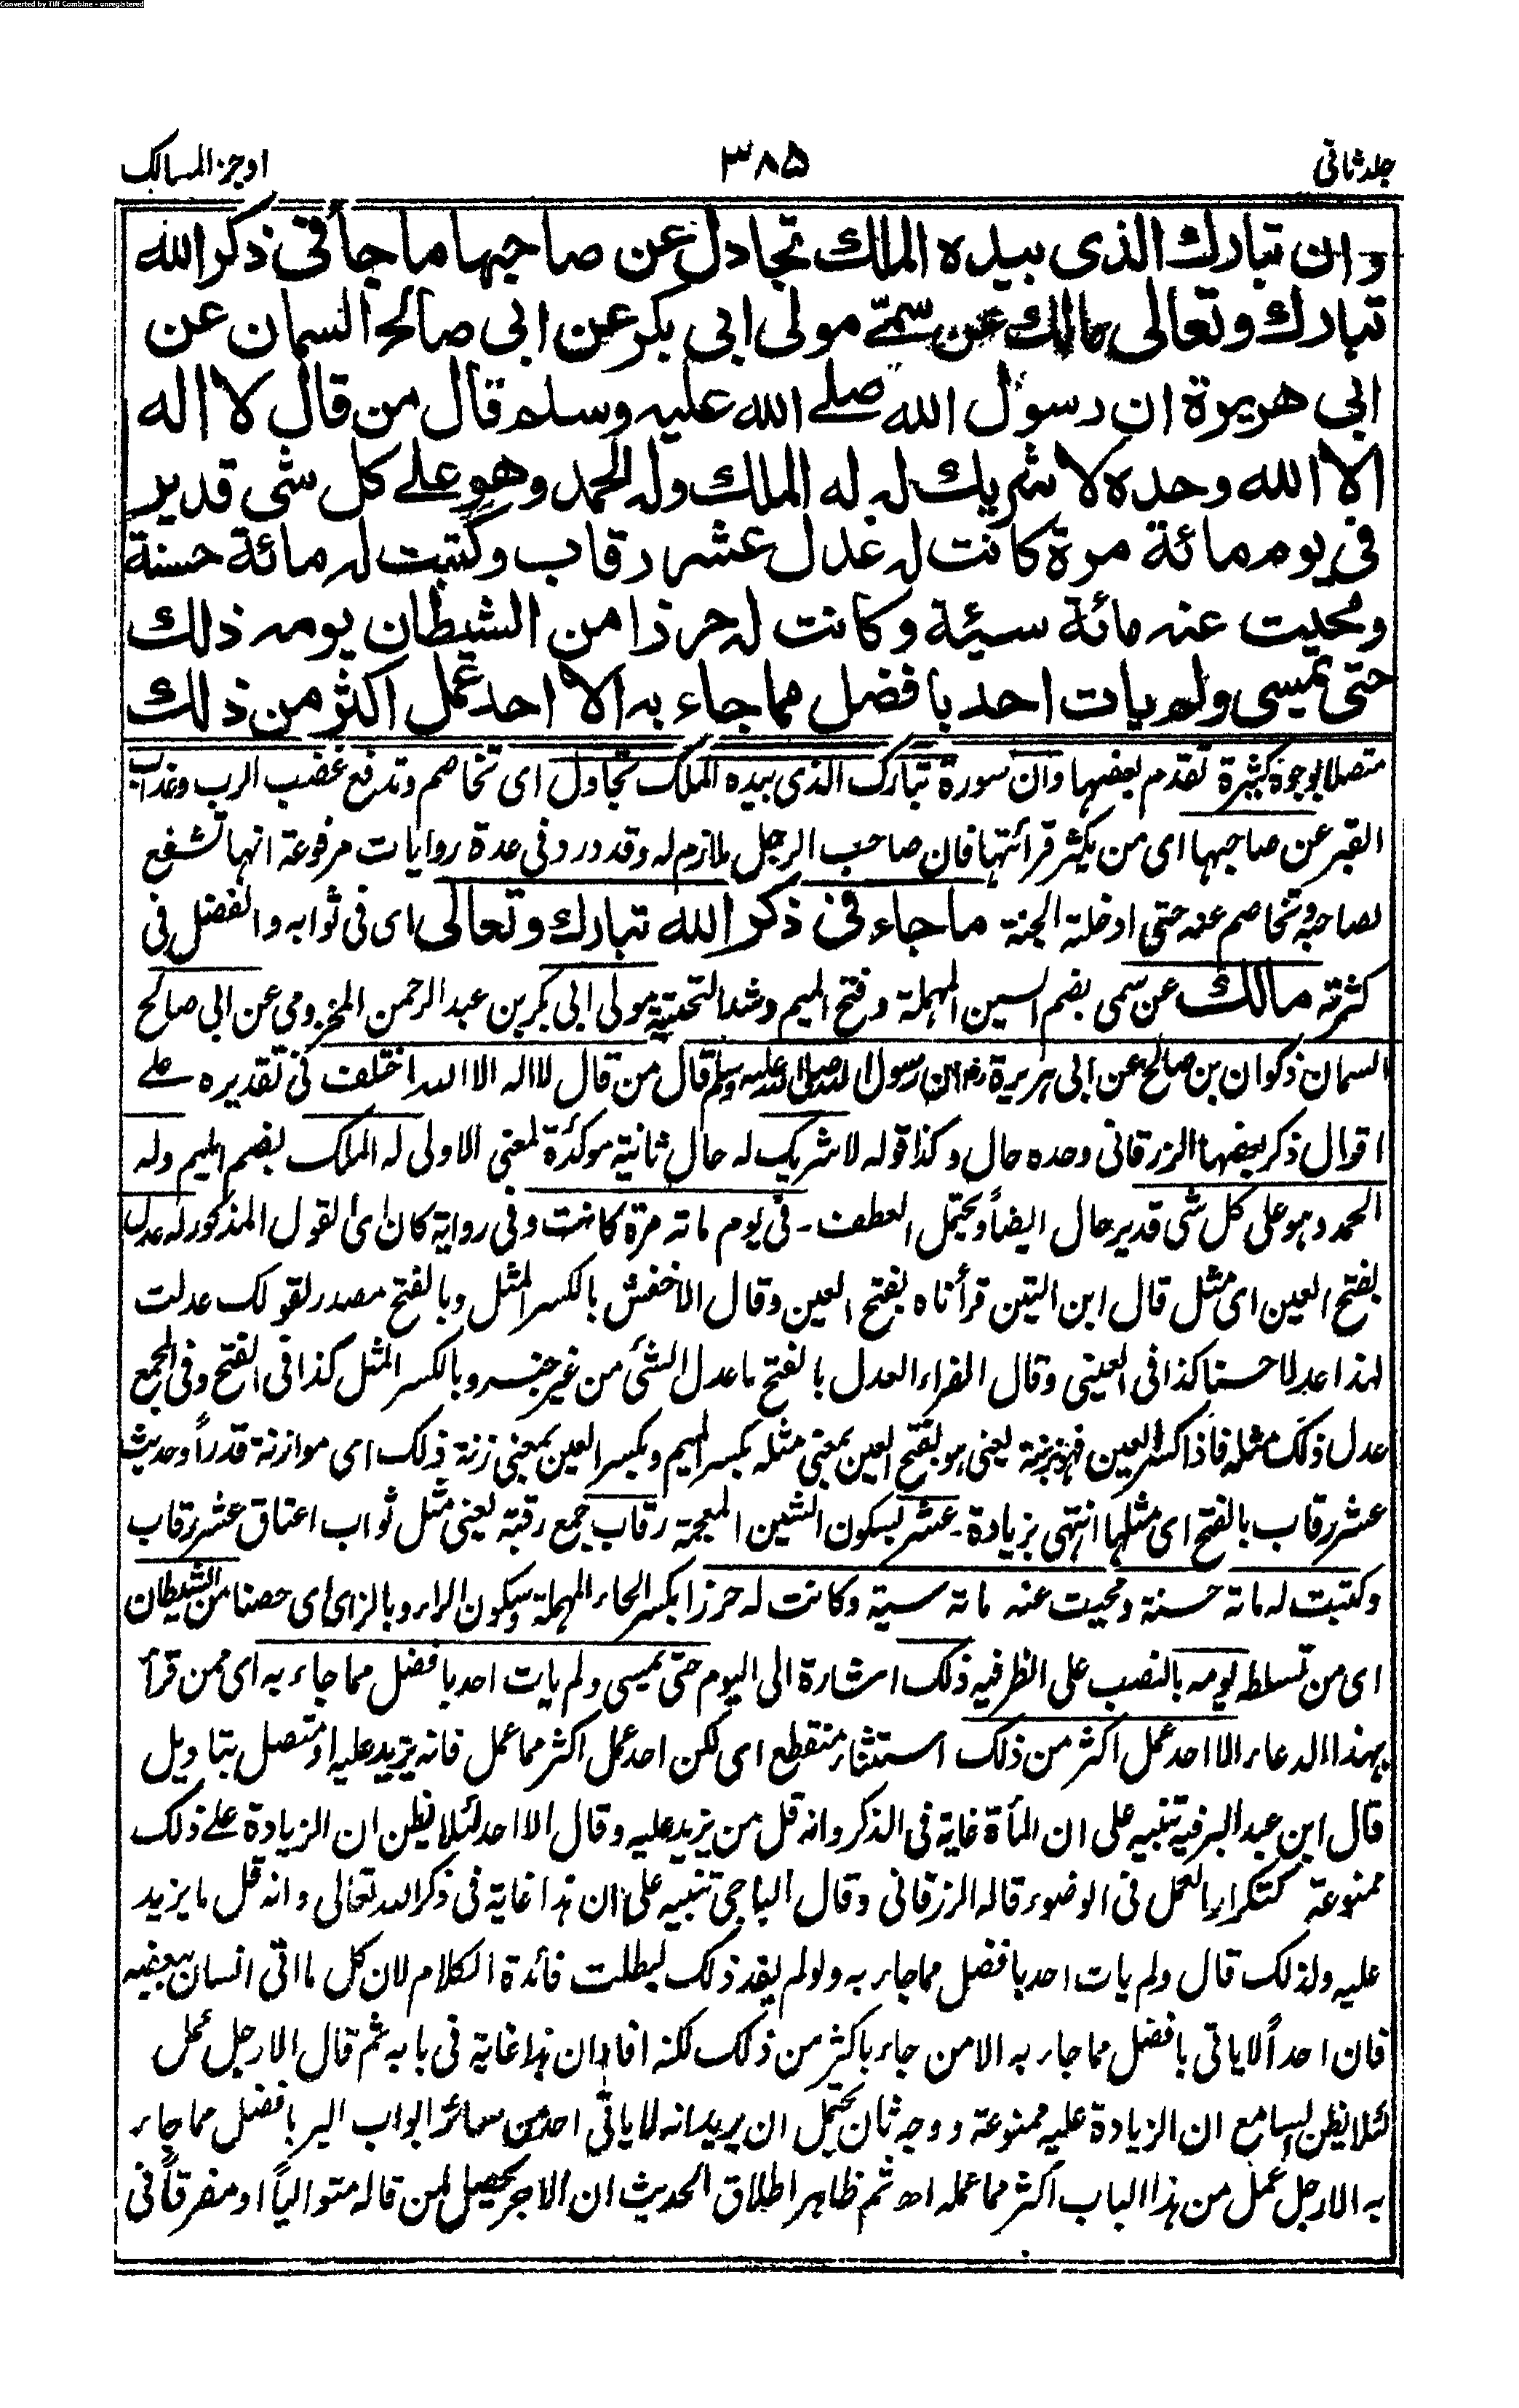 Converted by Tiff Combine - unregistered
جلد ثانی ۳۸۵ اوجز المسالك
وان تبارك الذى بيده الملك تجادل عن صاحبها ما جأ فى ذكر الله
تبارك وتعالى مالك عن سمىّ مولى ابى بكر عن ابى صالح السمان عن
ابى هريرة ان رسول الله صلے الله عليه وسلم قال من قال لا اله
الا الله وحده لا شريك له له الملك وله الحمد وهو علے كل شى قدير
فى يوم مائة مرة كانت له عدل عشر رقاب وكتبت له مائة حسنة
ومحيت عنه مائة سيئة وكانت له حرزا من الشيطان يومه ذلك
حتى يمسى ولم يات احد بافضل مما جاء به الا احد عمل اكثر من ذلك
متصلا بوجوه كثيرة تقدم بعضها وان سورة تبارك الذى بيده الملك تجادل اى تخاصم وتدفع غضب الرب وعذاب
القبر عن صاحبها اى من يكثر قرأتها فان صاحب الرجل ملازم له وقد ورد فى عدة روايات مرفوعة انها تشفع
لصاحبه وتخاصم عنه حتى ادخلته الجنة ما جاء فى ذكر الله تبارك وتعالى اى فى ثوابه والفضل فى
كثرته مالك عن سمى بضم السين المهملة وفتح الميم وشد التحتية مولى ابى بكر بن عبد الرحمن المخزومى عن ابى صالح
السمان ذكوان بن صالح عن ابى هريرة رض ان رسول الله صلى الله عليه وسلم قال من قال لا اله الا الله اختلفت فى تقديره علے
اقوال ذكر بعضها الزرقانى وحده حال وكذا قوله لا شريك له حال ثانية موكدة لمعنى الاولى له الملك بضم الميم وله
الحمد وهو على كل شى قدير حال ايضاً ويحتمل العطف - فى يوم مائة مرة كانت وفى رواية كان اى القول المذكور له عدل
بفتح العين اى مثل قال ابن التين قرأناه بفتح العين وقال الاخفش بالكسر المثل وبالفتح مصدر لقولك عدلت
لهذا عدلا حسنا كذا فى العينى وقال الفراء العدل بالفتح ما عدل الشئ من غير جنسه وبالكسر المثل كذا فى الفتح وفى المجمع
عدل ذلك مثله فاذا كسر العين فهو بزنته يعنى هو بفتح العين بمعنى مثله بكسر الميم وبكسر العين بمعنى زنة ذلك اى موازنة قدراً وحديث
عشر رقاب بالفتح اى مثلها انتهى بزيادة - عشر بسكون الشين المعجمة رقاب جمع رقبة يعنى مثل ثواب اعتاق عشر رقاب
وكتبت له مائة حسنة ومحيت عنه مائة سيئة وكانت له حرزا بكسر الحاء المهملة وسكون الراء وبالزاى اى حصنا من الشيطان
اى من تسلطه يومه بالنصب على الظرفية ذلك اشارة الى اليوم حتى يمسى ولم يات احد بافضل مما جاء به اى ممن قرأ
بهذا الدعاء الا احد عمل اكثر من ذلك استثناء منقطع اى لكن احد عمل اكثر مما عمل فانه يزيد عليه او متصل بتاويل
قال ابن عبد البر فيه تنبيه على ان المأة غاية فى الذكر وانه قل من يزيد عليه وقال الا احد لئلا يظن ان الزيادة علے ذلك
ممنوعة كتكرار العمل فى الوضوء قاله الزرقانى وقال الباجى تنبيه على ان هذا غاية فى ذكر الله تعالى وانه قل ما يزيد
عليه ولذلك قال ولم يات احد بافضل مما جاء به ولو لم يفد ذلك لبطلت فائدة الكلام لان كل ما اتى انسان ببعضه
فان احداً لا ياتى بافضل مما جاء به الا من جاء باكثر من ذلك لكنه افاد ان هذا غاية فى بابه ثم قال الا رجل عمل
لئلا يظن السامع ان الزيادة عليه ممنوعة ووجه ثان يحتمل ان يريد انه لا ياتى احد من سائر ابواب البر بافضل مما جاء
به الا رجل عمل من هذا الباب اكثر مما عمله اھ ثم ظاهر اطلاق الحديث ان الاجر يحصل لمن قاله متواليًا او متفرقاً فى